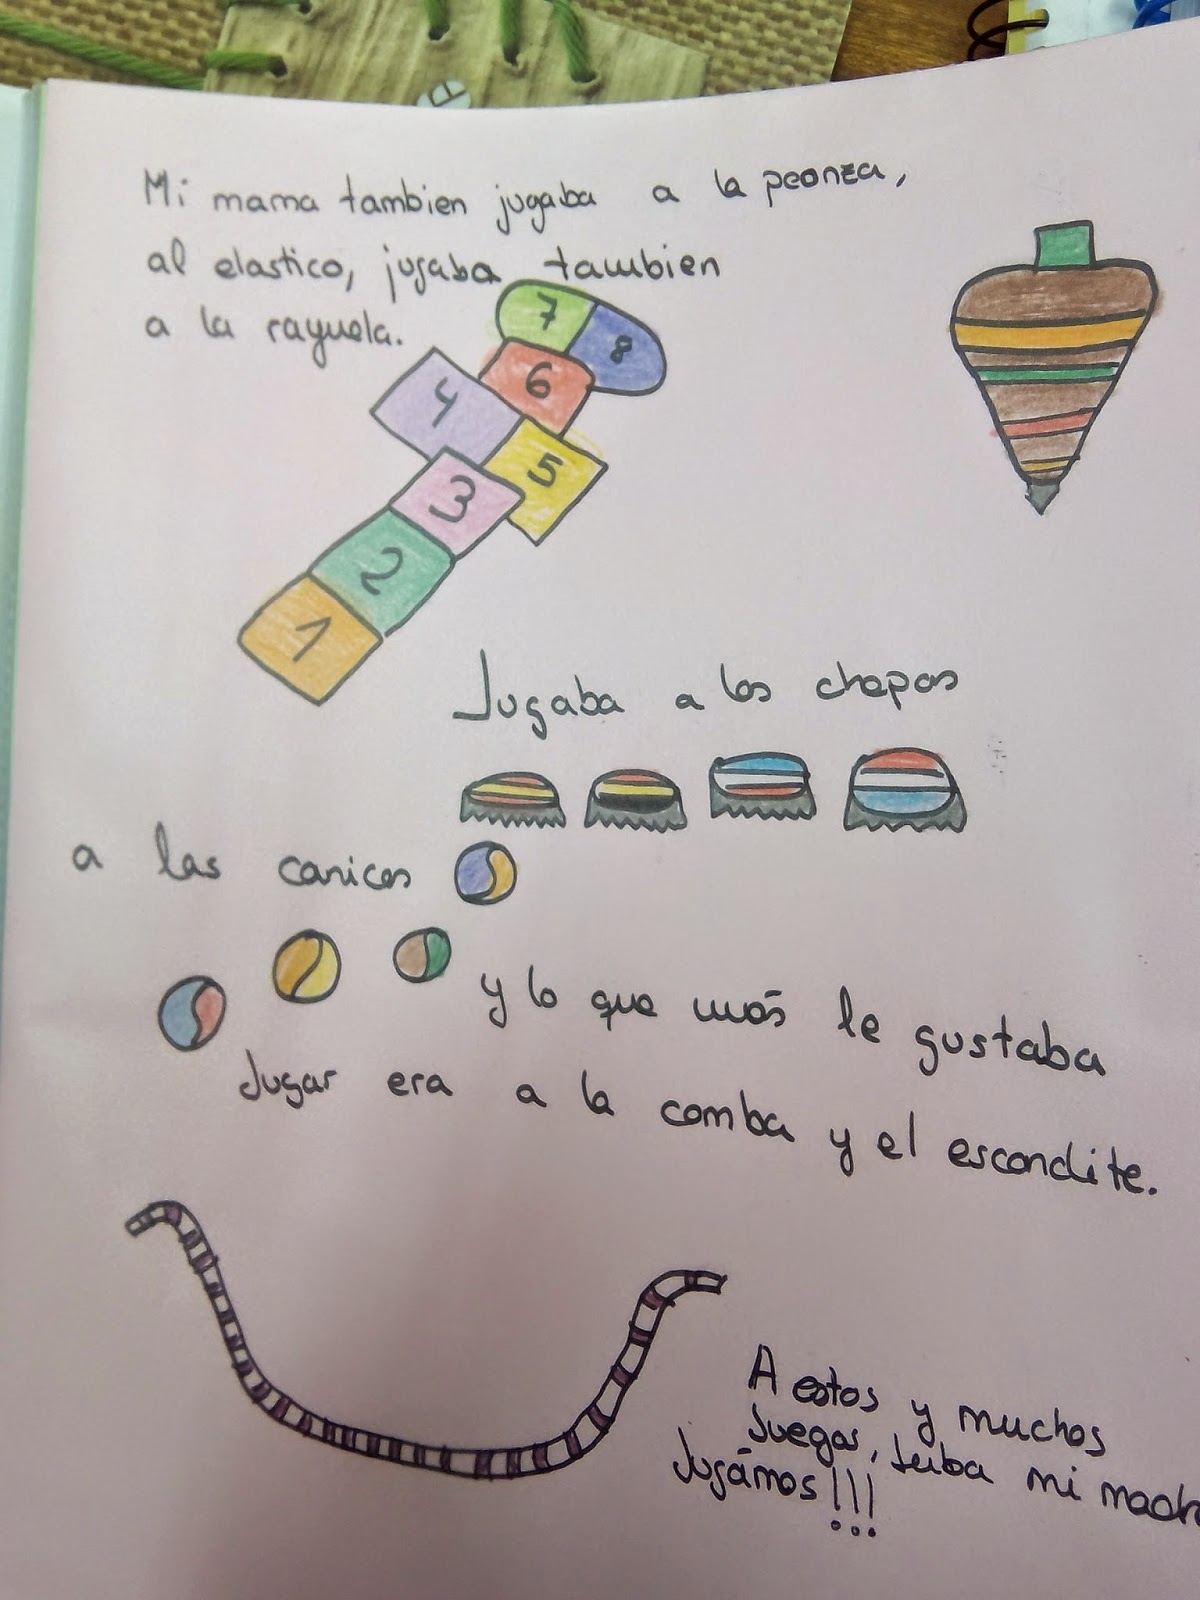 Mi mama tambien jugaba a la peonza,
al elastico, jugaba tambien
a la rayuela.
7
8
6
4
5
3
2
1
Jugaba a las chapas
a las canicas
y lo que más le gustaba
Jugar era a la comba y el escondite.
A estos y muchos
Juegos, mi madr
Jugámos!!!